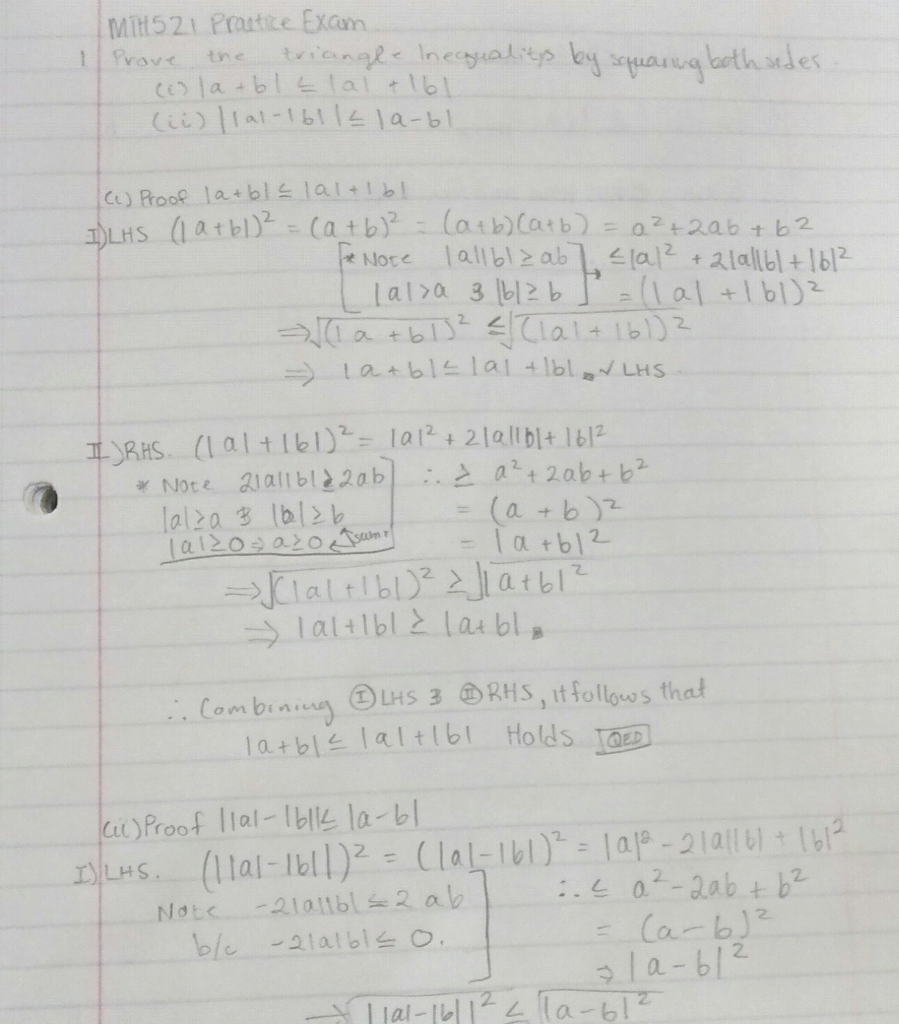 MTH521 Practice Exam
1 Prove the triangle Inequality by squaring both sides.
(i) |a+b| ≤ |a| + |b|
(ii) ||a|-|b|| ≤ |a-b|
(i) Proof |a+b| ≤ |a|+|b|
I) LHS (|a+b|)² = (a+b)² = (a+b)(a+b) = a²+2ab+b²
[* Note |a||b| ≥ ab] ≤ |a|² + 2|a||b| + |b|²
[|a|>a & |b|≥b] = (|a|+|b|)²
⇒ √(|a+b|)² ≤ √(|a|+|b|)²
⇒ |a+b| ≤ |a|+|b| ∎ ✓ LHS
II) RHS. (|a|+|b|)² = |a|² + 2|a||b| + |b|²
* Note 2|a||b| ≥ 2ab] ∴ ≥ a²+2ab+b²
|a|≥a & |b|≥b = (a+b)²
|a|≥0 ⇒ a≥0 ↰same = |a+b|²
⇒ √(|a|+|b|)² ≥ √|a+b|²
⇒ |a|+|b| ≥ |a+b| ∎
∴ Combining Ⓘ LHS & Ⓘ︎Ⓘ RHS, it follows that
|a+b| ≤ |a|+|b| Holds [QED]
(ii) Proof ||a|-|b|| ≤ |a-b|
I) LHS. (||a|-|b||)² = (|a|-|b|)² = |a|² - 2|a||b| + |b|²
Note -2|a||b| ≤ 2ab ] ∴ ≤ a²-2ab+b²
b/c -2|a|b| ≤ 0. = (a-b)²
⇒ |a-b|²
→ √||a|-|b||² ≤ √|a-b|²